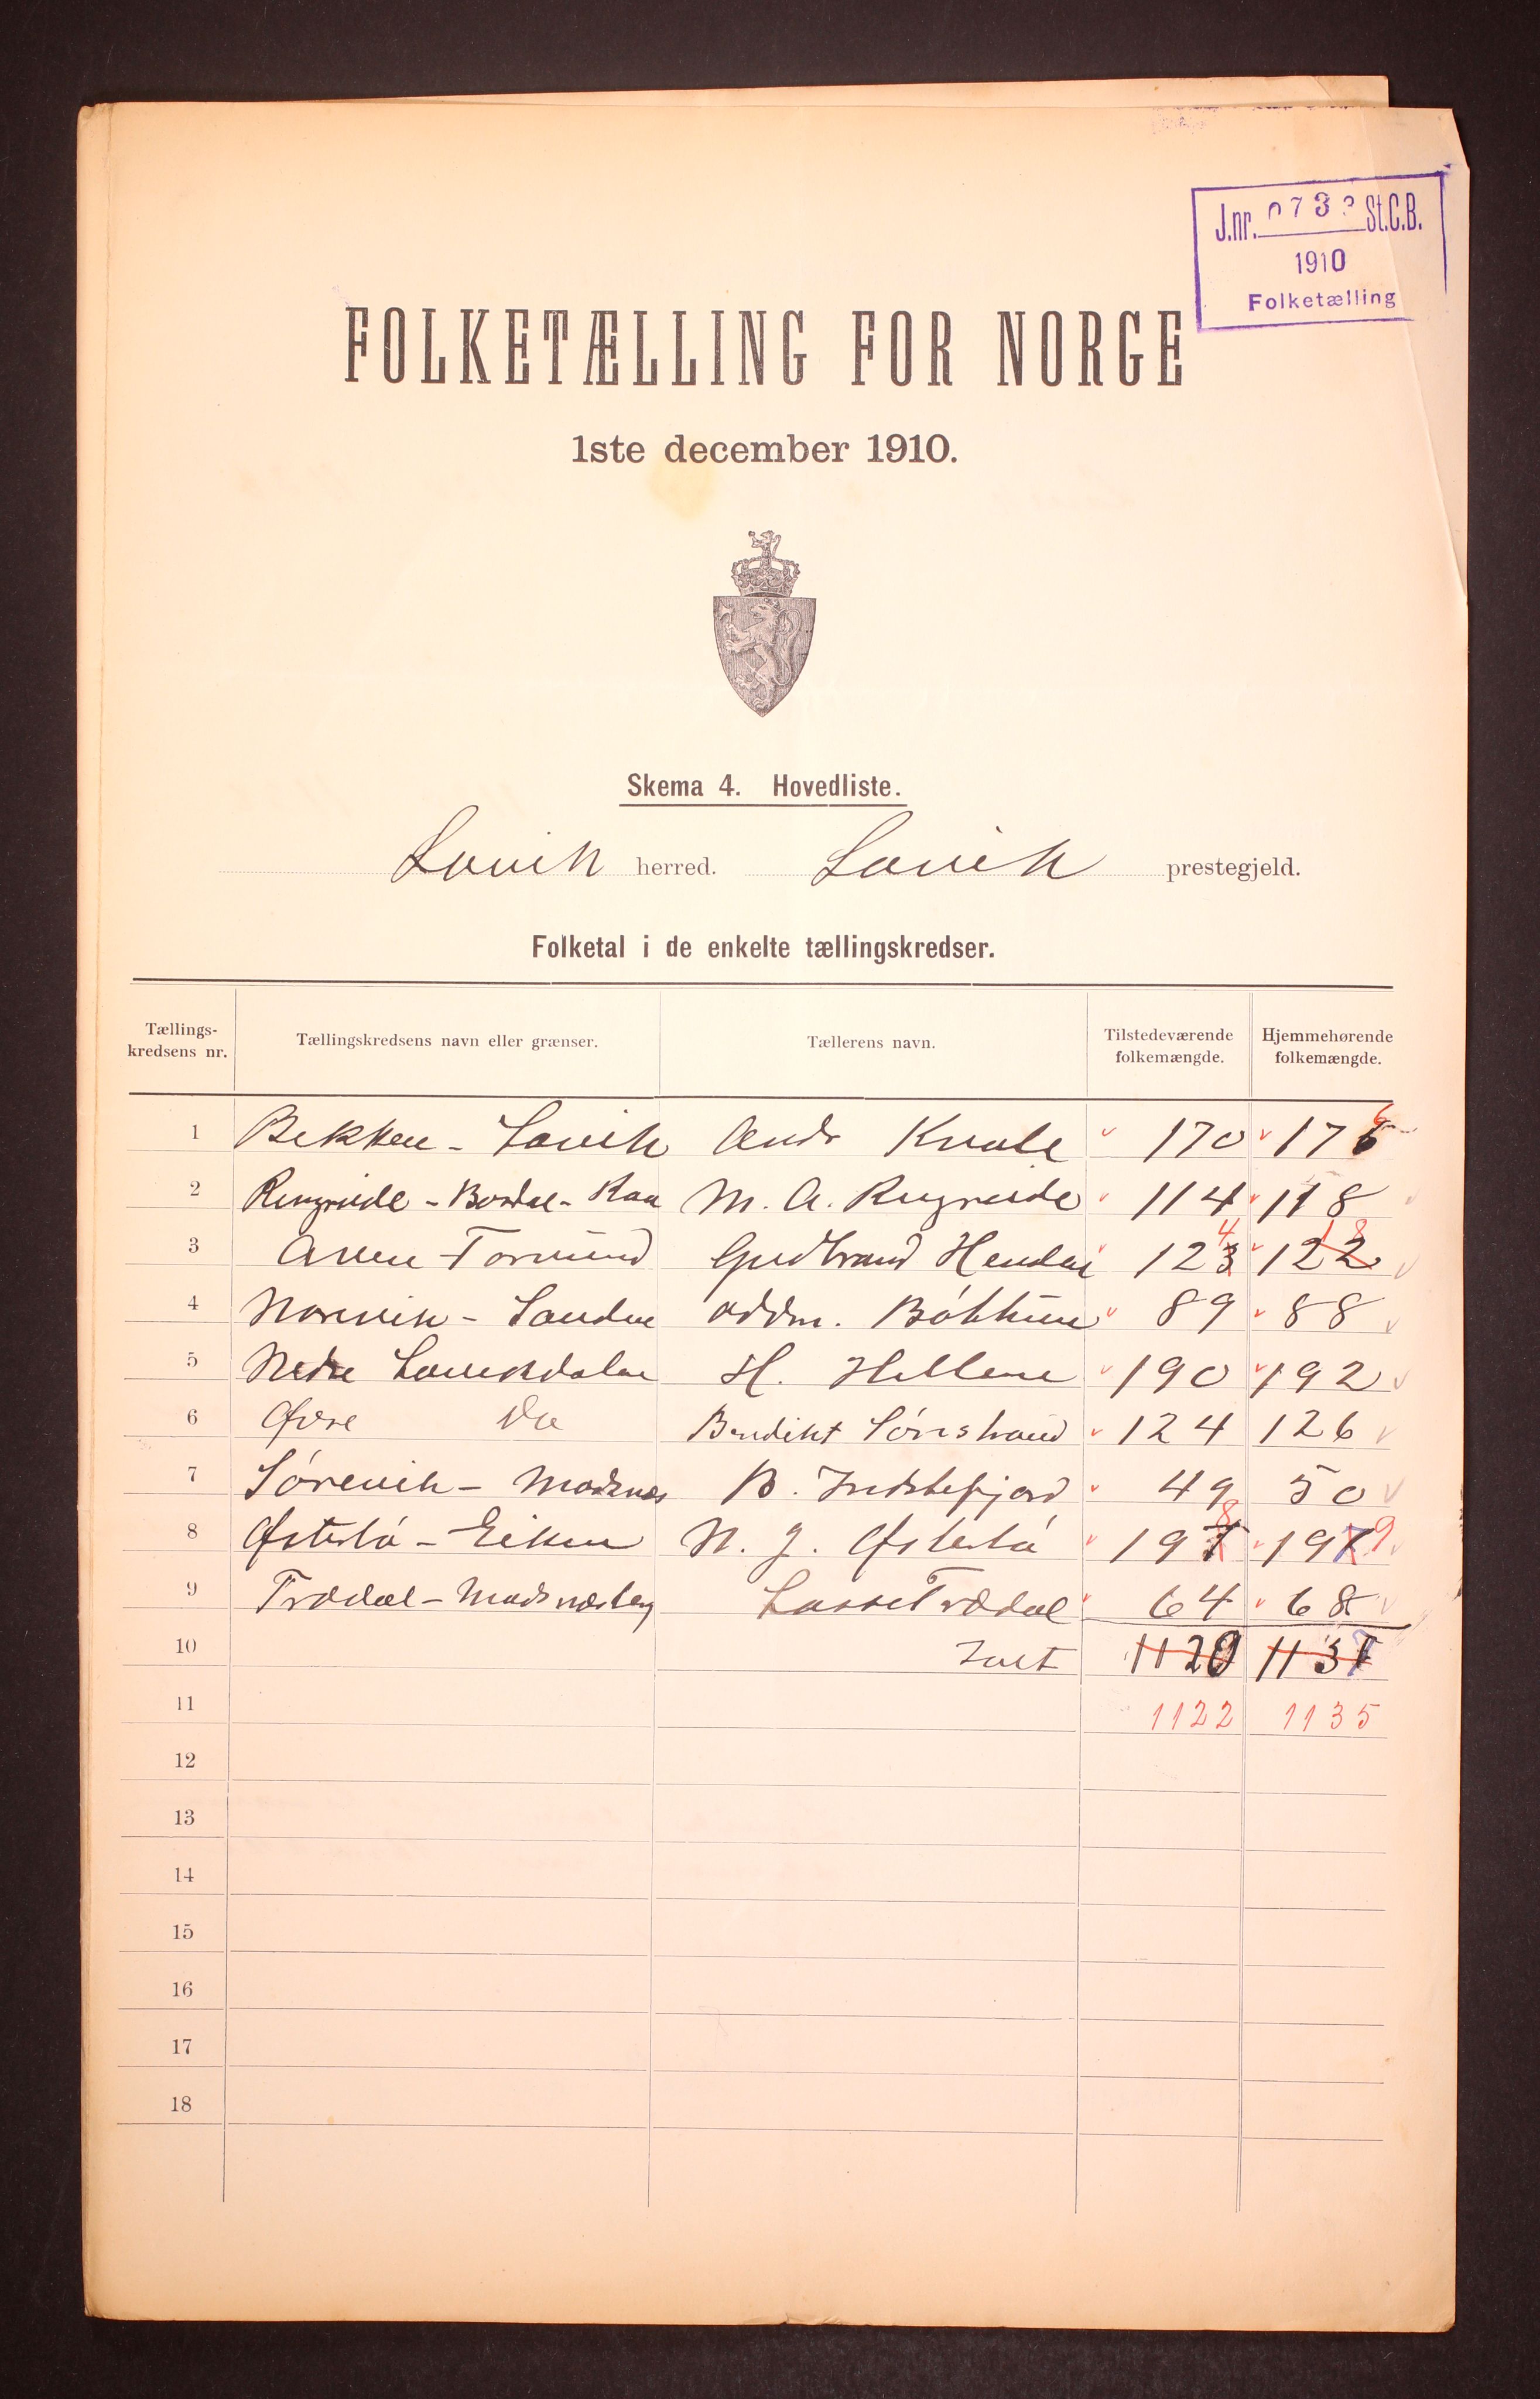 J.nr. 0733 St.C.B.
1910
Folketælling
FOLKETÆLLING FOR NORGE
1ste december 1910.
Skema 4. Hovedliste.
Lavik herred. Lavik prestegjeld.
Folketal i de enkelte tællingskredser.
Tællings-kredsens nr. Tællingskredsens navn eller grænser. Tællerens navn. Tilstedeværende folkemængde. Hjemmehørende folkemængde.
1 Bekken - Lavik Ands Kvale 170 176
2 Ringereide - Bordal - Raa M. A. Ringereide 114 118
3 Alven - Tormund Gudbrand Henden 123 4 122 18
4 Norevik - Sanden Oddm. Böthun 89 88
5 Nedre Lavikdalen H. Hellene 190 192
6 Øvre Do Bendikt Sørestrand 124 126
7 Sørevik - Madsnes B. Indstefjord 49 50
8 Østerbø - Eiken N. J. Østerbø 197 8 197 9
9 Trædal - Madsnesberg Lasse Trædal 64 68
10 Ialt 1120 1137
11 1122 1135
12
13
14
15
16
17
18